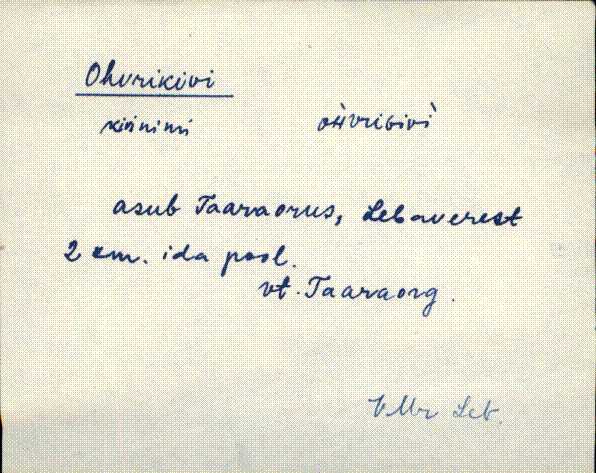 Ohvrikivi
kivinimi ohvriɢivì
asub Taaraorus, Lebaverest
2 km. ida pool.
vt. Taaraorg.
VMr Leb.